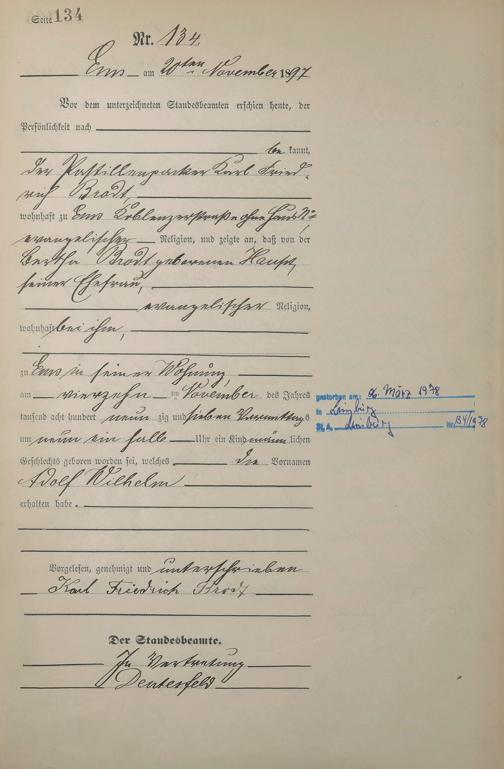 Seite 134
Nr. 134.
Ems am 20ten November 1897
Vor dem unterzeichneten Standesbeamten erschien heute, der
Persönlichkeit nach
be kannt,
der Pastillenpacker Karl Fried-
rich Brodt,
wohnhaft zu Ems Koblenzerstraße ohne Haus No,
evangelischer Religion, und zeigte an, daß von der
Bertha Brodt geborenen Haupt,
seiner Ehefrau,
evangelischer Religion,
wohnhaft bei ihm,
zu Ems in seiner Wohnung,
am vierzehn ten November des Jahres
tausend acht hundert neun zig und sieben Vormittags
um neun ein halb Uhr ein Kind männlichen
Geschlechts geboren worden sei, welches die Vornamen
Adolf Wilhelm
erhalten habe.
Vorgelesen, genehmigt und unterschrieben
Karl Friedrich Brodt
Der Standesbeamte.
In Vertretung
gestorben am: 6. März 1978
in Limburg
St. A. Limburg Nr. 134/1978